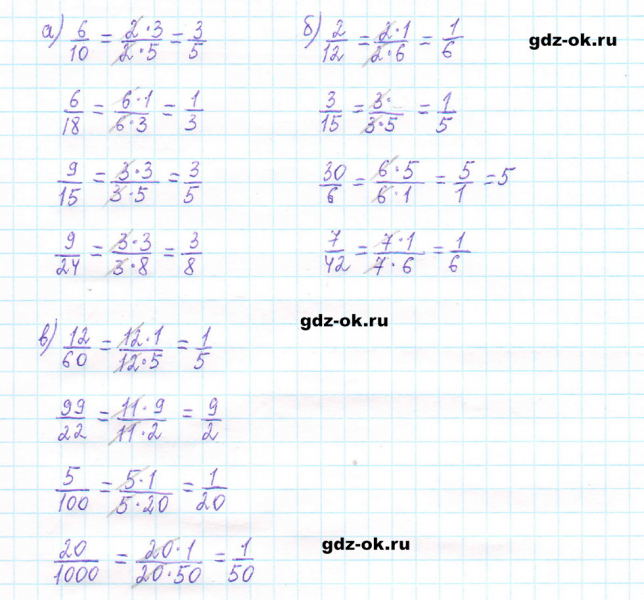 а) 6/10 = 2·3/2·5 = 3/5
6/18 = 6·1/6·3 = 1/3
9/15 = 3·3/3·5 = 3/5
9/24 = 3·3/3·8 = 3/8
б) 2/12 = 2·1/2·6 = 1/6
gdz-ok.ru
3/15 = 3·/3·5 = 1/5
30/6 = 6·5/6·1 = 5/1 = 5
7/42 = 7·1/7·6 = 1/6
gdz-ok.ru
в) 12/60 = 12·1/12·5 = 1/5
99/22 = 11·9/11·2 = 9/2
5/100 = 5·1/5·20 = 1/20
20/1000 = 20·1/20·50 = 1/50
gdz-ok.ru